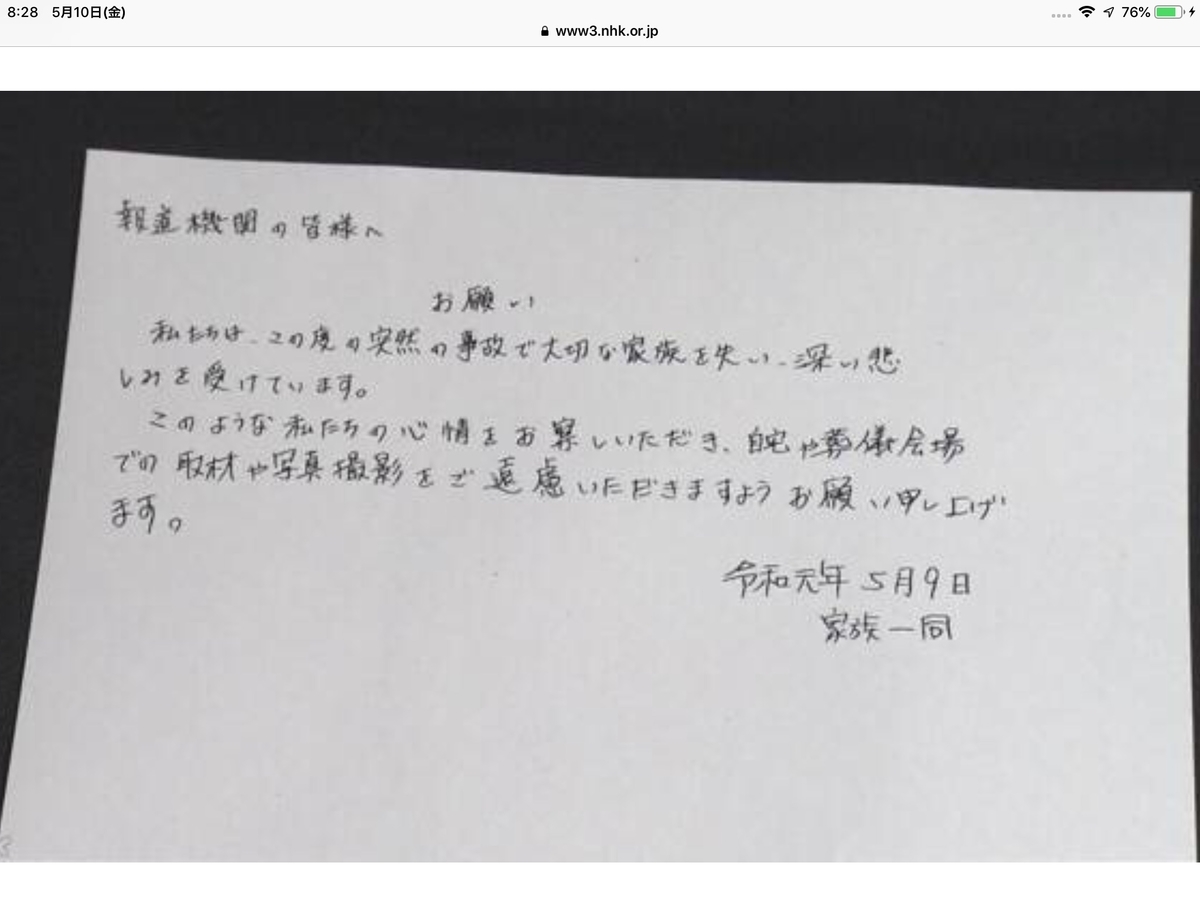 8:28 5月10日(金)
76%
www3.nhk.or.jp
報道機関の皆様へ
お願い
私たちは、この度の突然の事故で大切な家族を失い、深い悲
しみを受けています。
このような私たちの心情をお察しいただき、自宅や葬儀会場
での取材や写真撮影をご遠慮いただきますようお願い申し上げ
ます。
令和元年5月9日
家族一同